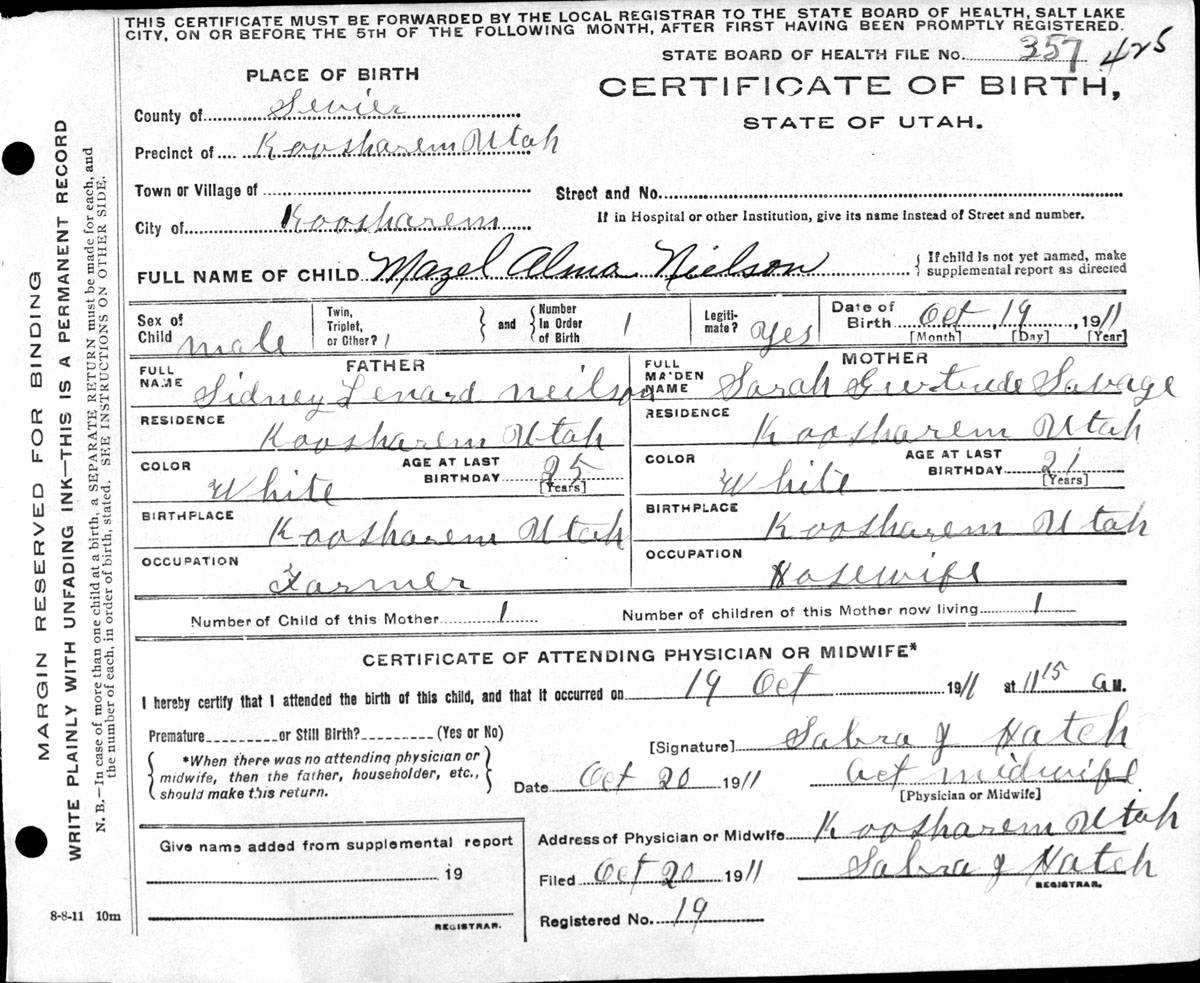 THIS CERTIFICATE MUST BE FORWARDED BY THE LOCAL REGISTRAR TO THE STATE BOARD OF HEALTH, SALT LAKE
CITY, ON OR BEFORE THE 5TH OF THE FOLLOWING MONTH, AFTER FIRST HAVING BEEN PROMPTLY REGISTERED.
STATE BOARD OF HEALTH FILE No. 357 425
PLACE OF BIRTH
CERTIFICATE OF BIRTH,
STATE OF UTAH.
County of Sevier
Precinct of Koosharem Utah
Town or Village of
Street and No.
City of Koosharem
If in Hospital or other Institution, give its name instead of Street and number.
FULL NAME OF CHILD Mazel Alma Nielson { If child is not yet named, make supplemental report as directed
Sex of Child male
Twin, Triplet, or Other? 1 } and { Number In Order of Birth 1
Legiti-mate? Yes
Date of Birth Oct, 19, 1911
[Month] [Day] [Year]
FATHER
FULL NAME Sidney Lenard Neilson
RESIDENCE Koosharem Utah
COLOR White
AGE AT LAST BIRTHDAY 25 [Years]
BIRTHPLACE Koosharem Utah
OCCUPATION Farmer
MOTHER
FULL MAIDEN NAME Sarah Gurtrude Savage
RESIDENCE Koosharem Utah
COLOR White
AGE AT LAST BIRTHDAY 21 [Years]
BIRTHPLACE Koosharem Utah
OCCUPATION Hosewife
Number of Child of this Mother 1
Number of children of this Mother now living 1
CERTIFICATE OF ATTENDING PHYSICIAN OR MIDWIFE*
I hereby certify that I attended the birth of this child, and that it occurred on 19 Oct 1911 at 11 15 a M.
Premature or Still Birth? (Yes or No)
{ *When there was no attending physician or
midwife, then the father, householder, etc.,
should make this return. }
[Signature] Sabra J Hatch
Date Oct 20 1911 Act midwife
[Physician or Midwife]
Address of Physician or Midwife Koosharem Utah
Filed Oct 20 1911 Sabra J Hatch
REGISTRAR.
Registered No. 19
Give name added from supplemental report
19
REGISTRAR.
8-8-11 10m
MARGIN RESERVED FOR BINDING
WRITE PLAINLY WITH UNFADING INK—THIS IS A PERMANENT RECORD
N. B.—In case of more than one child at a birth, a SEPARATE RETURN must be made for each, and
the number of each, in order of birth, stated. SEE INSTRUCTIONS ON OTHER SIDE.